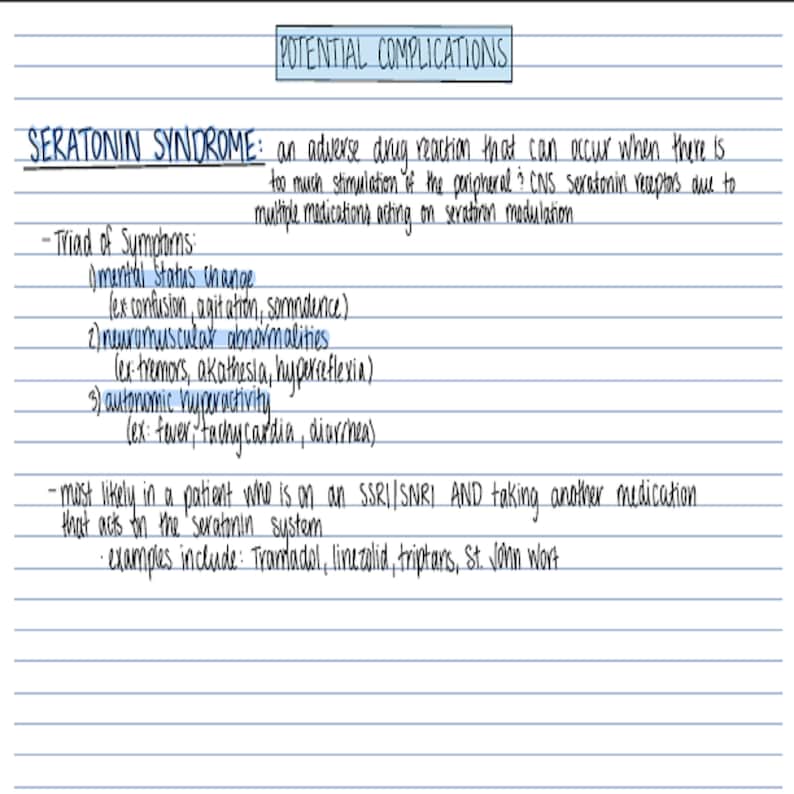 POTENTIAL COMPLICATIONS
SERATONIN SYNDROME: an adverse drug reaction that can occur when there is
too much stimulation of the peripheral & CNS seratonin receptors due to
multiple medications acting on seratonin modulation
- Triad of Symptoms:
1) mental status change
(ex: confusion, agitation, somndence)
2) neuromuscular abnormalities
(ex: tremors, akathesia, hyperreflexia)
3) autonomic hyperactivity
(ex: fever, tachycardia, diarrhea)
- most likely in a patient who is on an SSRI/SNRI AND taking another medication
that acts on the seratonin system
· examples include: Tramadol, linezolid, triptans, St. John Wort